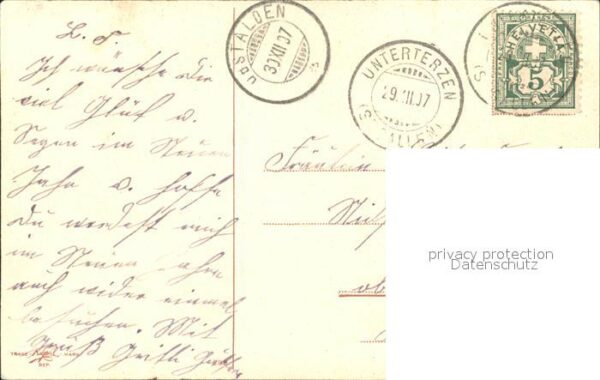 L. F.
Ich wünsche Dir
viel Glück u.
Segen im Neuen
Jahr u. hoffe
Du werdest mich
im Neuen Jahre
auch wider einmal
besuchen. Mit
Gruß Gritli
OBSTALDEN
30.XII.07
UNTERTERZEN
29.XII.07
(ST. GALLEN)
HELVETIA
5
Fräulein
ob
privacy protection
Datenschutz
TRADE MARK
DEP.